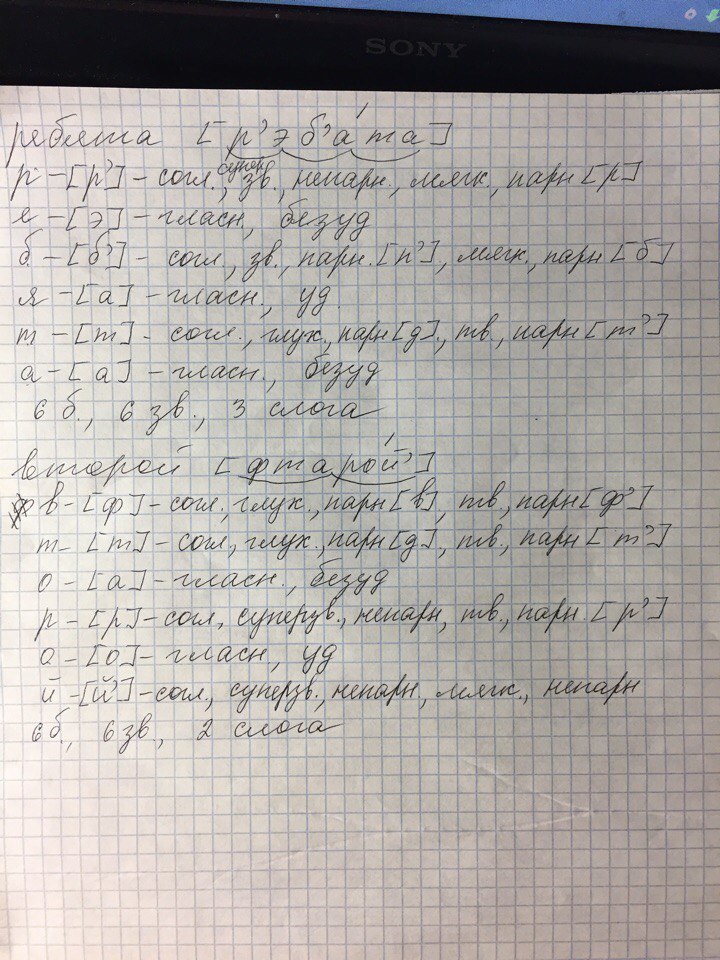 SONY
ребята [р'эб'ата]
р - [р'] - согл., супер зв., непарн., мягк., парн [р]
е - [э] - гласн, безуд
б - [б'] - согл, зв., парн. [п'], мягк., парн [б]
я - [а] - гласн, уд.
т - [т] - согл., глух., парн [д], тв., парн [т']
а - [а] - гласн., безуд
6 б., 6 зв., 3 слога
второй [фтарой']
в - [ф] - согл, глух., парн [в], тв., парн [ф']
т - [т] - согл, глух., парн [д], тв., парн [т']
о - [а] - гласн., безуд
р - [р] - сол, суперзв., непарн, тв., парн. [р']
о - [о] - гласн, уд
й - [й'] - согл, суперзв., непарн, мягк., непарн
6 б., 6 зв., 2 слога